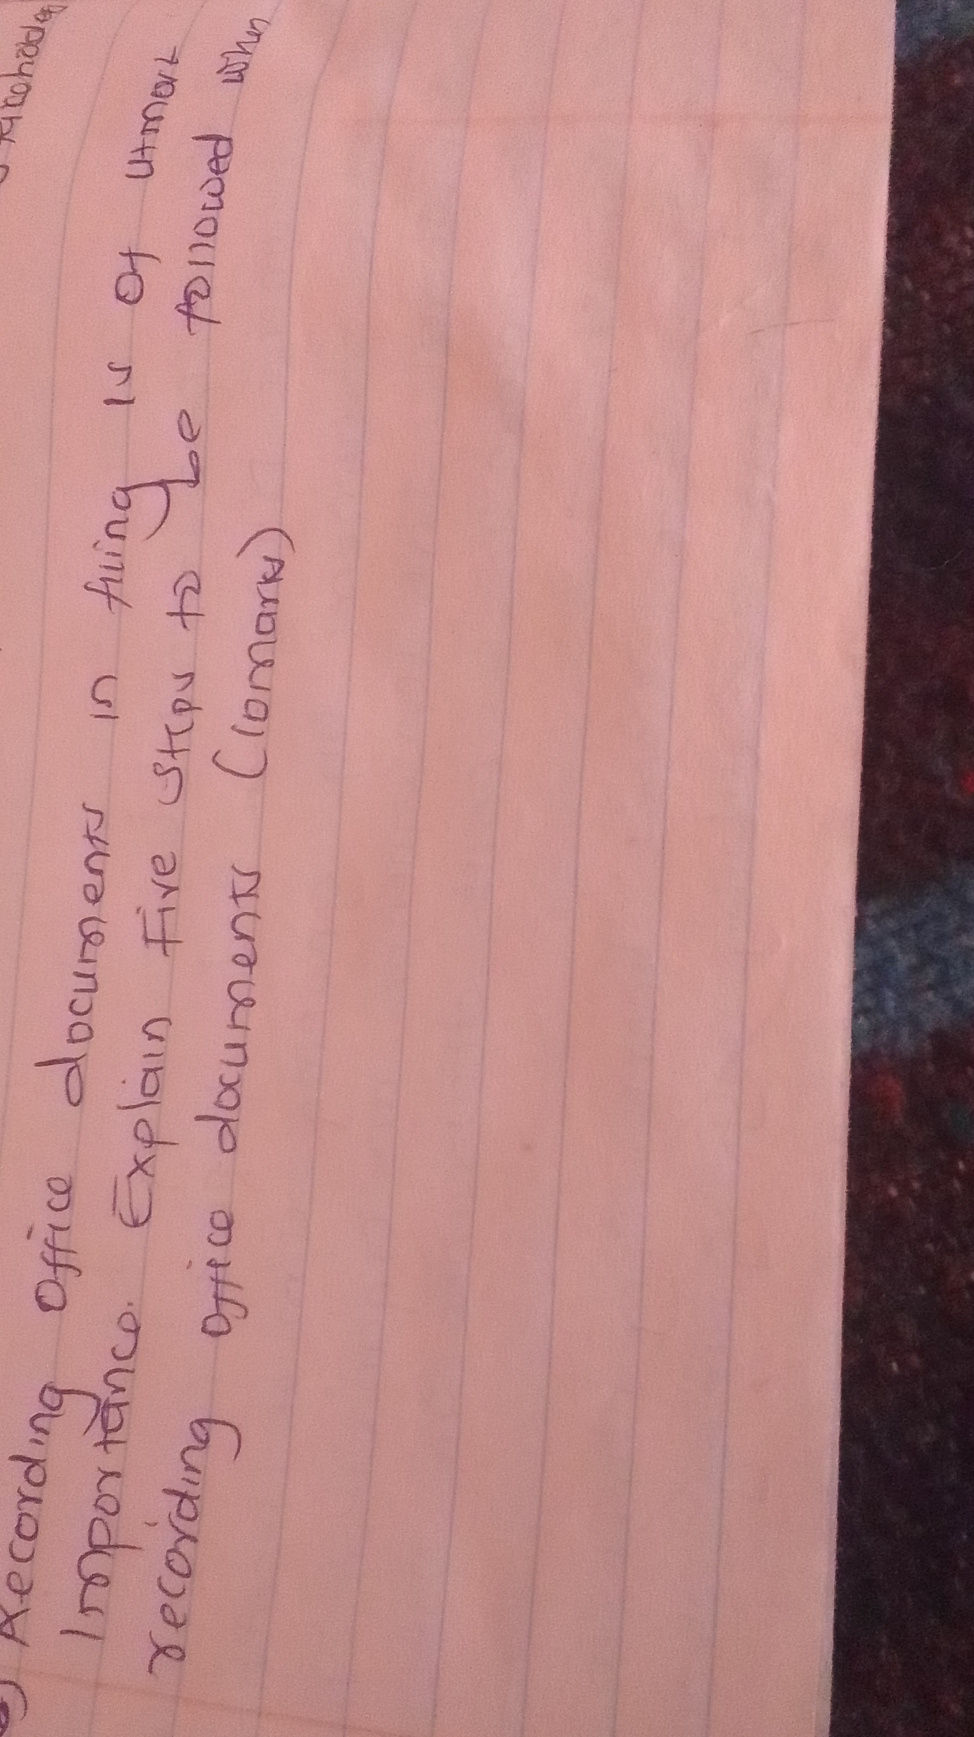 Recording office documents in filing is of utmost
Importance. Explain Five steps to be followed when
recording office documents (10marks)